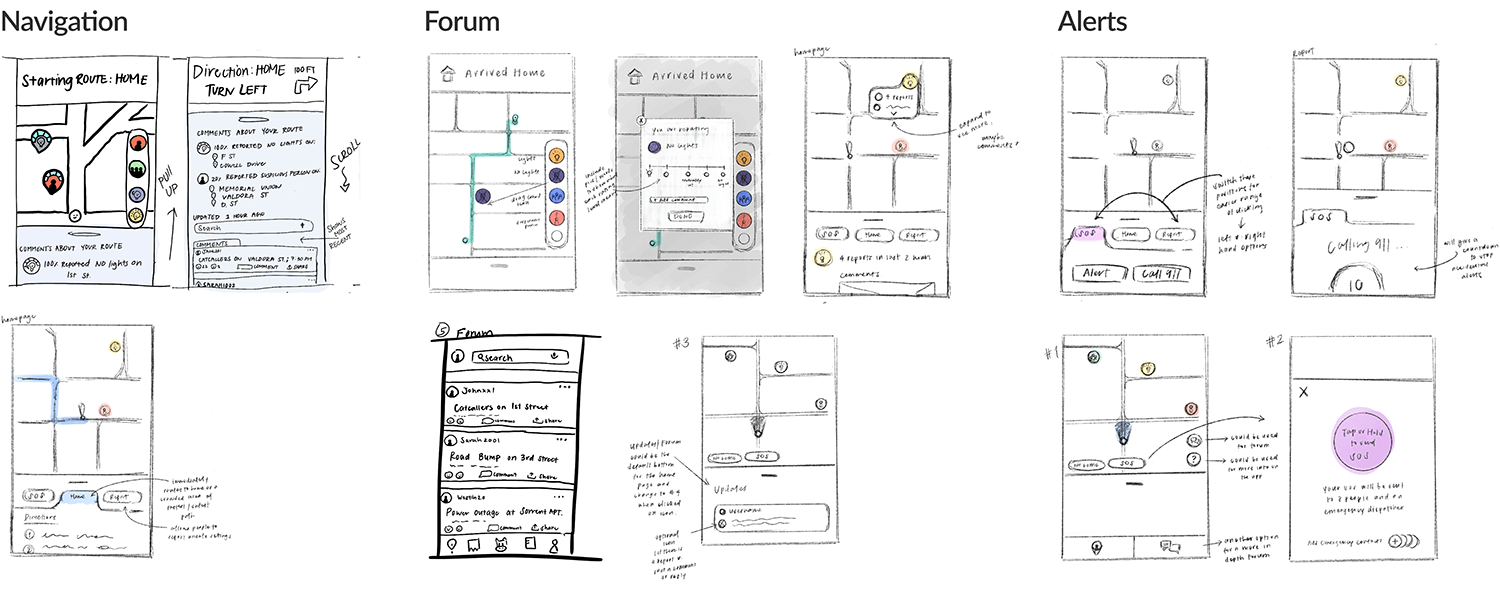 Navigation
Starting ROUTE: HOME
COMMENTS ABOUT YOUR ROUTE
100% Reported NO lights on
1st St.
PULL UP
Direction: HOME 100 FT
TURN LEFT
COMMENTS ABOUT YOUR ROUTE
100% REPORTED NO LIGHTS ON:
F ST
COWELL DRIVER
REPORTED SUSPICIOUS PERSON ON:
MEMORIAL UNION
VALDORA ST
D. ST
UPDATED 1 HOUR AGO
Search
COMMENTS
CATCALLERS ON VALDORA ST.
COMMENT SHARE
SARAH
SCROLL
SHOWS
MOST
RECENT
homepage
SOS Home Report
Directions
immediately
routes to home
Forum
Arrived Home
lights
No lights
Arrived Home
You are reporting
No lights
+ Add comment
DONE
homepage
4 reports
expand to
see more.
maybe
comments?
SOS Home Report
4 reports in last 2 hours
comments
5 Forum
search
Johnxx1
Catcallers on 1st Street
comment share
Sarah2001
Road Bump on 3rd Street
comment share
Power outage at Sorrent APT.
comment share
#3
SOS
Updates
username
updates/forum
could be the
default bottom
for the home
page and
change to
when clicked
on icon.
optional
icon
Alerts
SOS Home Report
Alert Call 911
switch these
positions for
easier range
of clicking
left & right
hand options
Report
SOS
Calling 911 ...
10
will give a
countdown
to stop
accidental
alerts
#1
SOS
could be used
for forum
could be used
for more info on
the app
another option
for a more in
depth forum
#2
X
Tap or Hold
to send
SOS
your SOS will be sent
to 2 people and an
emergency dispatcher
Add emergency contacts